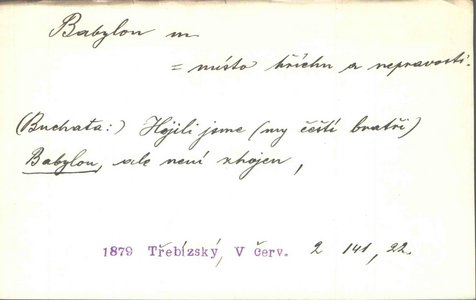 Babylon m
= místo hříchu a nepravosti.
(Buchata:) Hojili jsme (my čeští bratři)
Babylon, ale není zhojen,
1879 Třebízský, V červ. 2 141, 22.